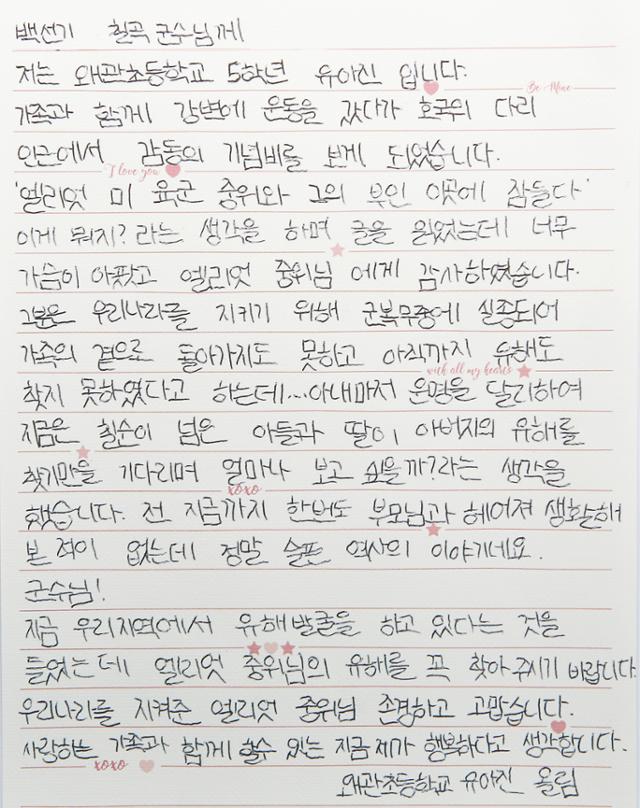 백선기 칠곡 군수님께
저는 왜관초등학교 5학년 유아진 입니다.
Be Mine
가족과 함께 강변에 운동을 갔다가 호국의 다리
인근에서 감동의 기념비를 보게 되었습니다.
I love you
'엘리엇 미 육군 중위와 그의 부인 이곳에 잠들다'
이게 뭐지? 라는 생각을 하며 글을 읽었는데 너무
가슴이 아팠고 엘리엇 중위님 에게 감사하였습니다.
그분은 우리나라를 지키기 위해 군복무중에 실종되어
가족의 곁으로 돌아가지도 못하고 아직까지 유해도
with all my hearts
찾지 못하였다고 하는데...아내마저 운명을 달리하여
지금은 칠순이 넘은 아들과 딸이 아버지의 유해를
찾기만을 기다리며 얼마나 보고 싶을까?라는 생각을
xoxo
했습니다. 전 지금까지 한번도 부모님과 헤어져 생활해
본 적이 없는데 정말 슬픈 역사의 이야기네요.
군수님!
지금 우리지역에서 유해발굴을 하고 있다는 것을
들었는데 엘리엇 중위님의 유해를 꼭 찾아주시기 바랍니다.
우리나라를 지켜준 엘리엇 중위님 존경하고 고맙습니다.
사랑하는 가족과 함께 할수 있는 지금 제가 행복하다고 생각합니다.
xoxo
왜관초등학교 유아진 올림